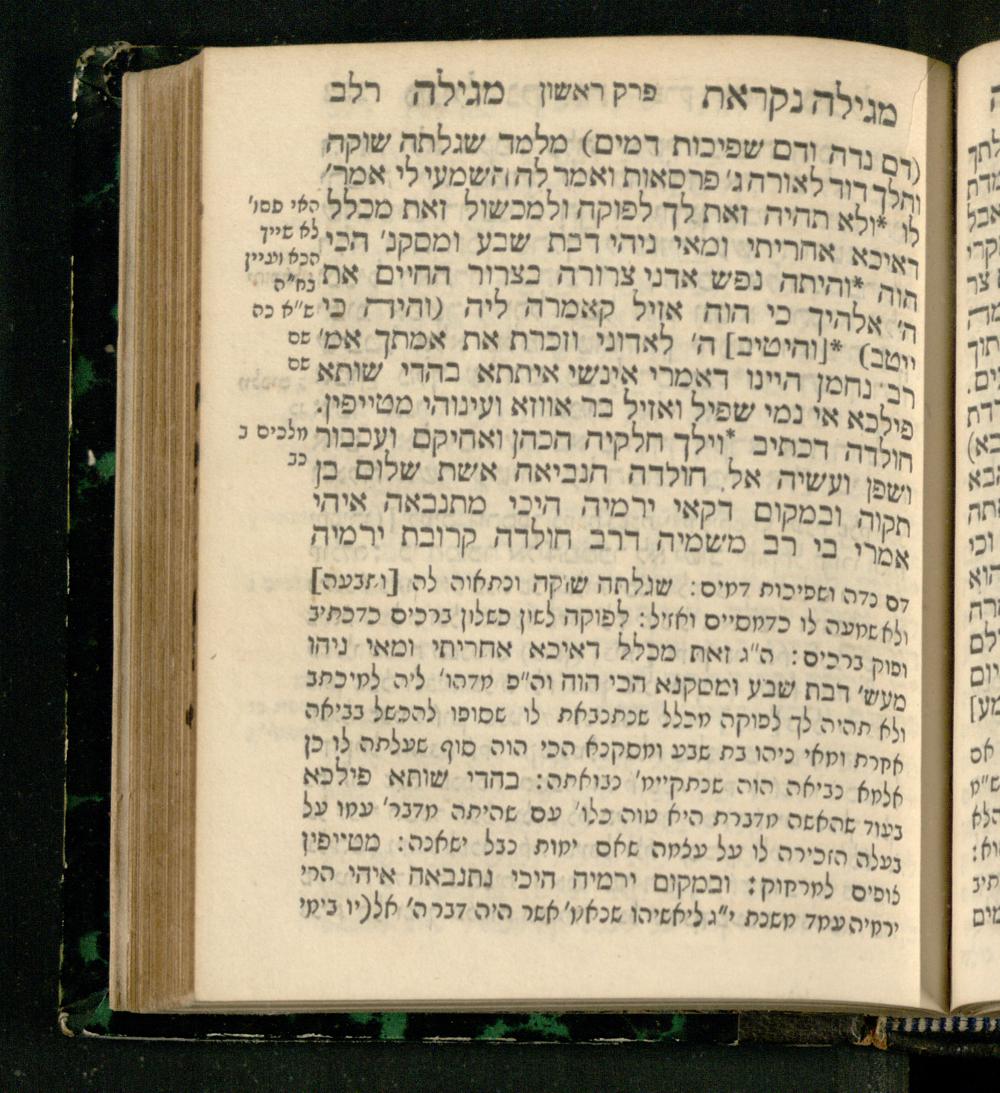 מגילה נקראת פרק ראשון מגילה רלב
(דם נדה ודם שפיכות דמים) מלמד שגלתה שוקה
והלך דוד לאורה ג' פרסאות ואמר לה השמעי לי אמר'
לו *ולא תהיה זאת לך לפוקה ולמכשול זאת מכלל
דאיכא אחריתי ומאי ניהי דבת שבע ומסקנ' הכי
הוה *והיתה נפש אדני צרורה בצרור החיים את
ה' אלהיך כי הוה אזיל קאמרה ליה (והיה כי
ייטב) *[והיטיב] ה' לאדוני וזכרת את אמתך אמ'
רב נחמן היינו דאמרי אינשי איתתא בהדי שותא
פילכא אי נמי שפיל ואזיל בר אווזא ועינוהי מטייפין.
חולדה דכתיב *וילך חלקיה הכהן ואחיקם ועכבור
ושפן ועשיה אל חולדה הנביאה אשת שלום בן
תקוה ובמקום דקאי ירמיה היכי מתנבאה איהי
אמרי בי רב משמיה דרב חולדה קרובת ירמיה
האי פסו'
לא שייך
הכא ועניין
בת"ה
ש"א כה
שם
שם
מלכים ב
כב
דם נדה ושפיכות דמים: שגלתה שוקה ונתאוה לה [ותבעה]
ולא שמעה לו כדמסיים ואזיל: לפוקה לשון כשלון ברכים כדכתיב
ופוק ברכים: ה"ג זאת מכלל דאיכא אחריתי ומאי ניהו
מעש' דבת שבע ומסקנא הכי הוה וה"פ מדהו' ליה למיכתב
ולא תהיה לך לפוקה מכלל שנתנבאת לו שסופו להכשל בביאה
אחרת ומאי ניהו בת שבע ומסקנא הכי הוה סוף שעלתה לו כן
אלמא נביאה הוה שנתקיימ' נבואתה: בהדי שותא פילכא
בעוד שהאשה מדברת היא טוה כלו' עם שהיתה מדבר' עמו על
בעלה הזכירה לו על עצמה שאם ימות נבל ישאנה: מטייפין
צופים למרחוק: ובמקום ירמיה היכי נתנבאה איהי הרי
ירמיה עמד משנת י"ג ליאשיהו שנאמ' אשר היה דבר ה' אליו בימי